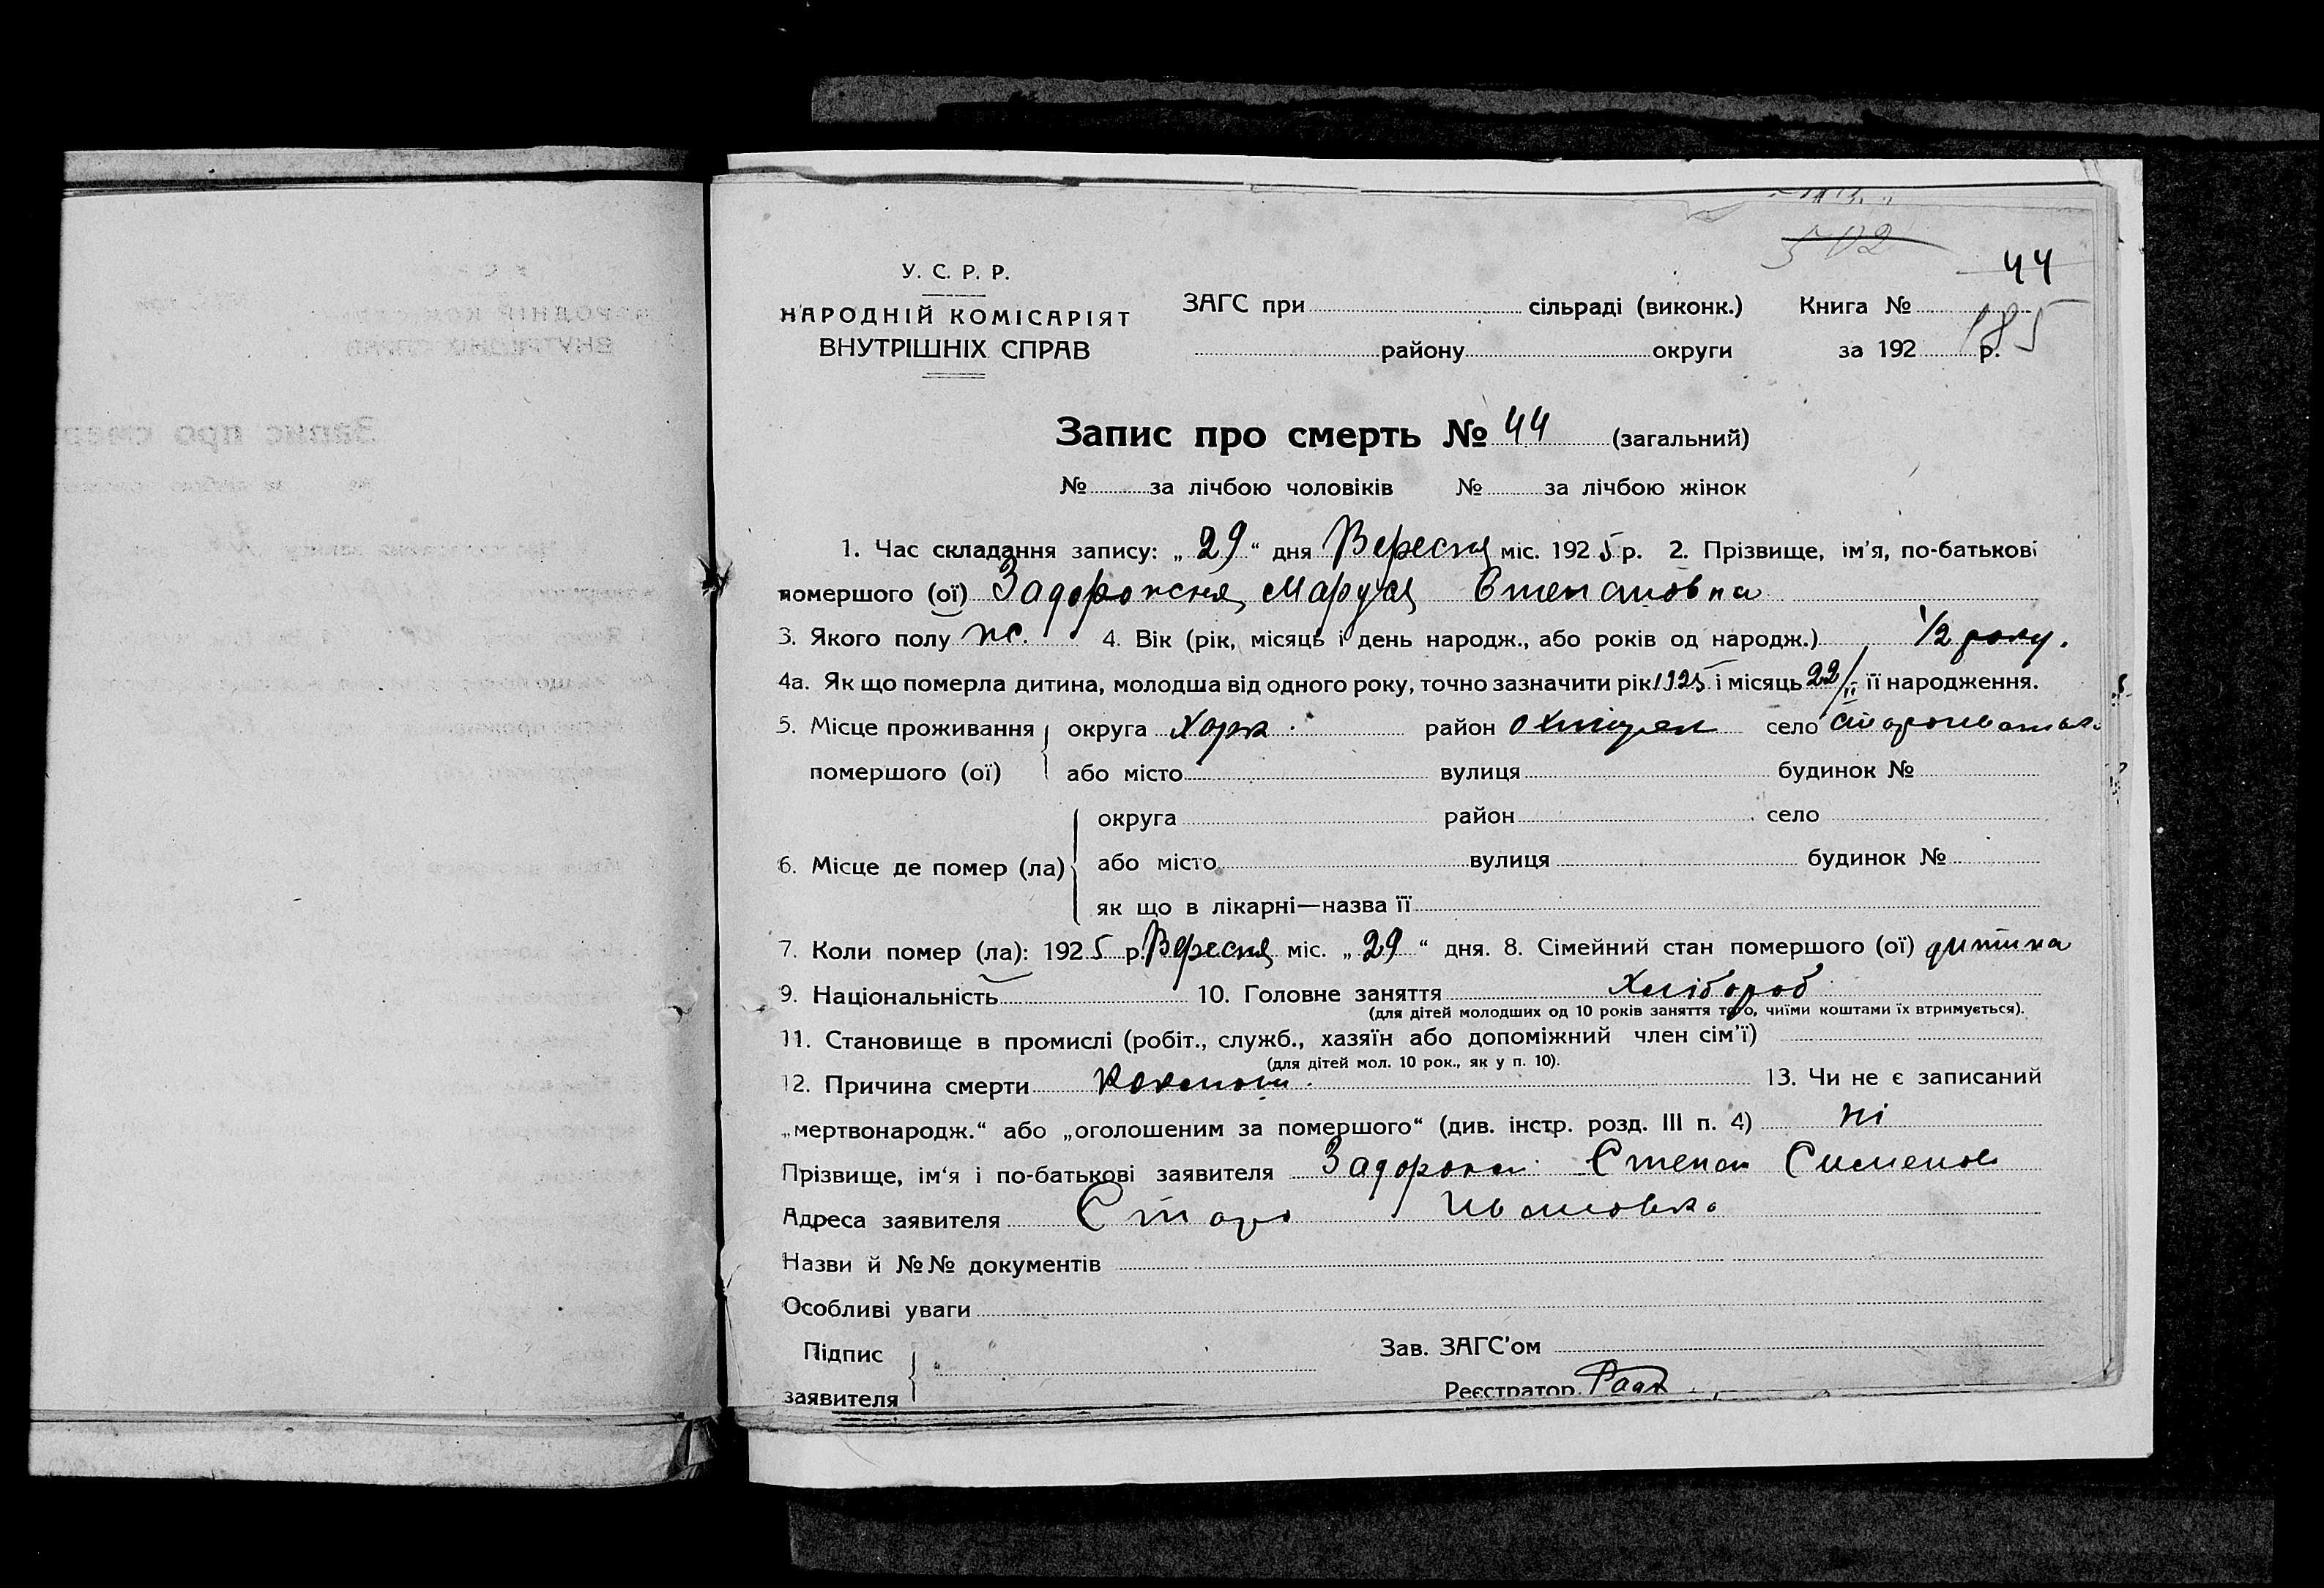 502
44
У. С. Р. Р.
НАРОДНІЙ КОМІСАРІЯТ
ВНУТРІШНІХ СПРАВ
ЗАГС при сільраді (виконк.) Книга № 185
району округи за 192 р.
Запис про смерть № 44 (загальний)
№ за лічбою чоловіків № за лічбою жінок
1. Час складання запису: „ 29 “ дня Вересня міс. 1925 р. 2. Прізвище, ім'я, по-батькові
помершого (ої) Задорожня Маруся Степановна
3. Якого полу ж. 4. Вік (рік, місяць і день народж., або років од народж.) 1/2 року.
4а. Як що померла дитина, молодша від одного року, точно зазначити рік 1925 і місяць 22/II її народження.
5. Місце проживання округа Харк. район Охтирск село
помершого (ої) або місто вулиця будинок №
округа район село
6. Місце де помер (ла) або місто вулиця будинок №
як що в лікарні—назва її
7. Коли помер (ла): 1925 р. Вересня міс. „ 29 “ дня. 8. Сімейний стан помершого (ої) дитина
9. Національність 10. Головне заняття Хлібороб
(для дітей молодших од 10 років заняття того, чиїми коштами їх втримується).
11. Становище в промислі (робіт., служб., хазяїн або допоміжний член сім'ї)
(для дітей мол. 10 рок., як у п. 10).
12. Причина смерти 13. Чи не є записаний
„мертвонародж.“ або „оголошеним за помершого“ (див. інстр. розд. III п. 4) ні
Прізвище, ім'я і по-батькові заявителя Задорожн Степан Сименов
Адреса заявителя Старо Ивановка
Назви й №№ документів
Особливі уваги
Підпис
заявителя
Зав. ЗАГС'ом
Реєстратор